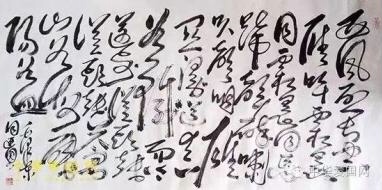 西风烈长空
雁叫霜晨
月霜晨月马
蹄声碎喇
叭声咽雄
关漫道真
如铁而今
迈步从头越
从头越苍
山如海残
阳如血